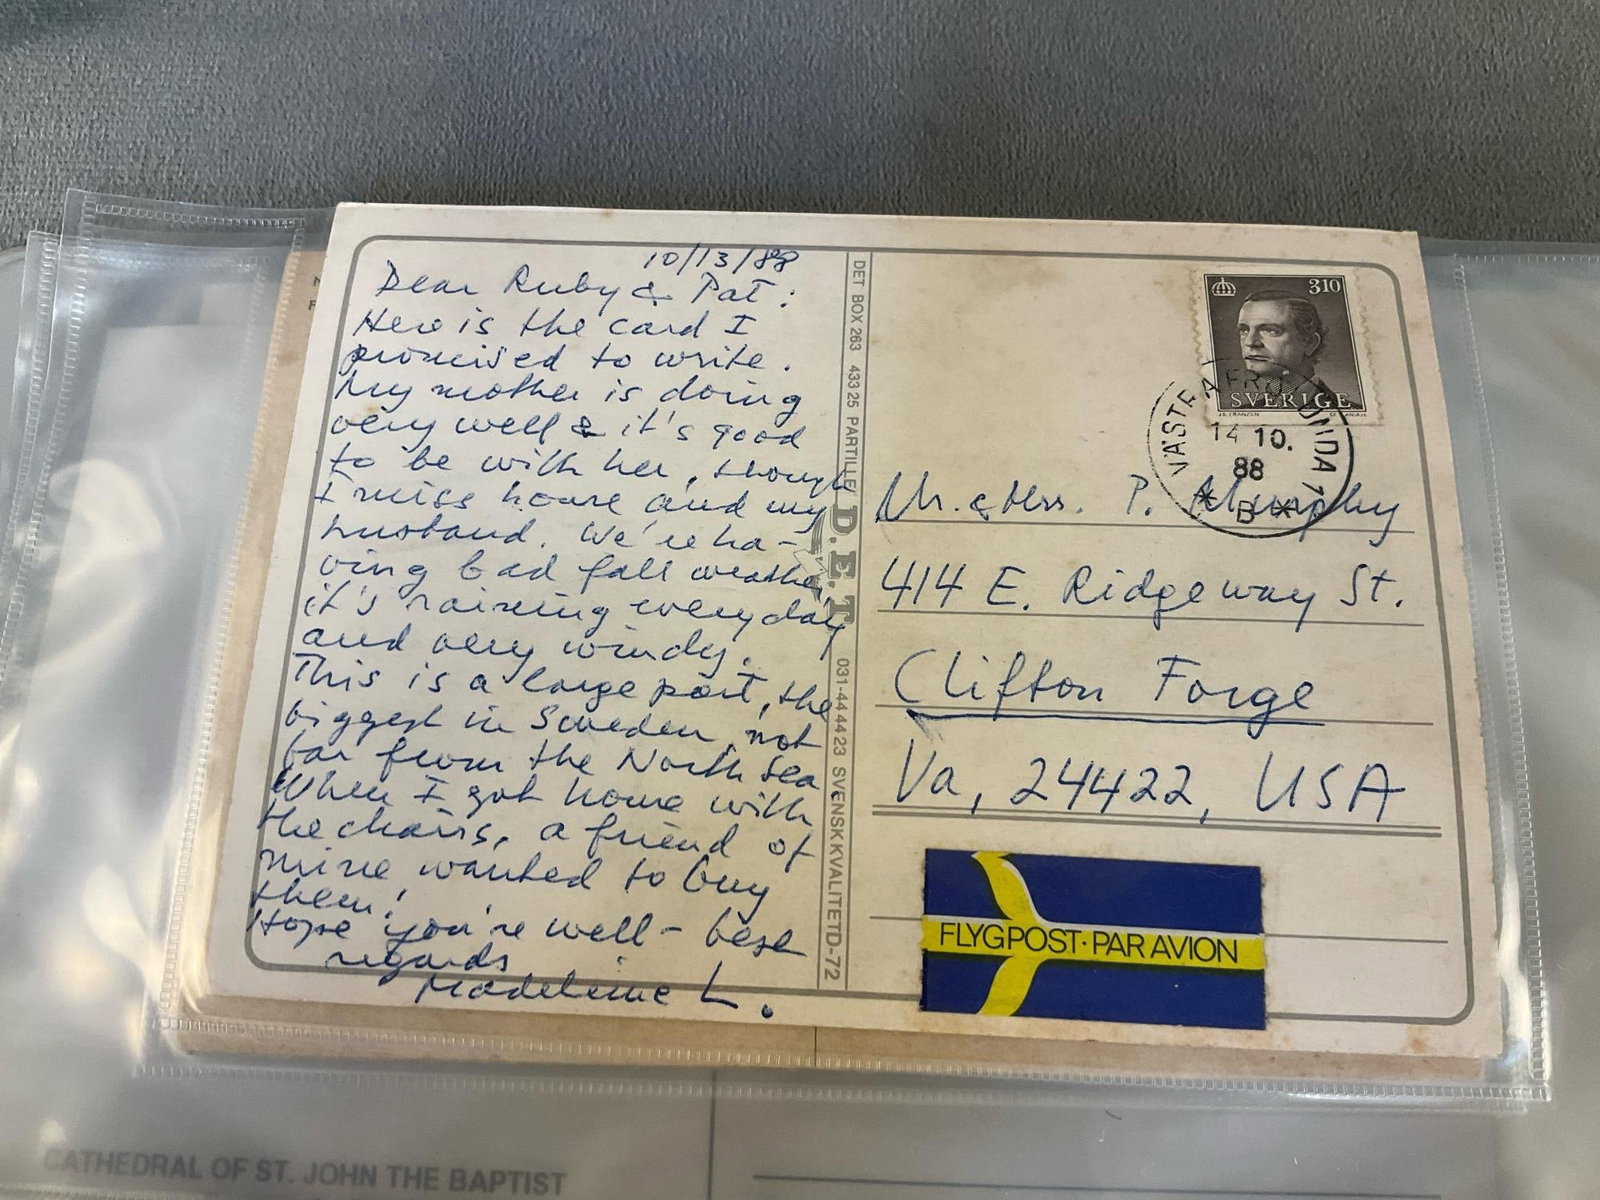 10/13/88
Dear Ruby & Pat:
Here is the card I
promised to write.
My mother is doing
very well & it's good
to be with her, though
I miss home and my
husband. We're ha-
ving bad fall weather,
it's raining every day
and very windy.
This is a large port, the
biggest in Sweden, not
far from the North Sea
When I got home with
the chairs, a friend of
mine wanted to buy
them!
Hope you're well - best
regards
Madeleine L.
DET BOX 263 433 25 PARTILLE
D.E.T.
031-44 44 23 SVENSK KVALITET D-72
310
SVERIGE
VÄSTRA FRÖLUNDA 1
14 10.
88
* B *
Mr. & Mrs. P. Murphy
414 E. Ridgeway St.
Clifton Forge
Va, 24422, USA
FLYGPOST·PAR AVION
CATHEDRAL OF ST. JOHN THE BAPTIST